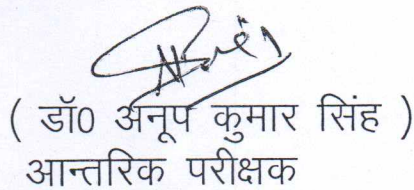 ( डॉ0 अनूप कुमार सिंह )
आन्तरिक परीक्षक